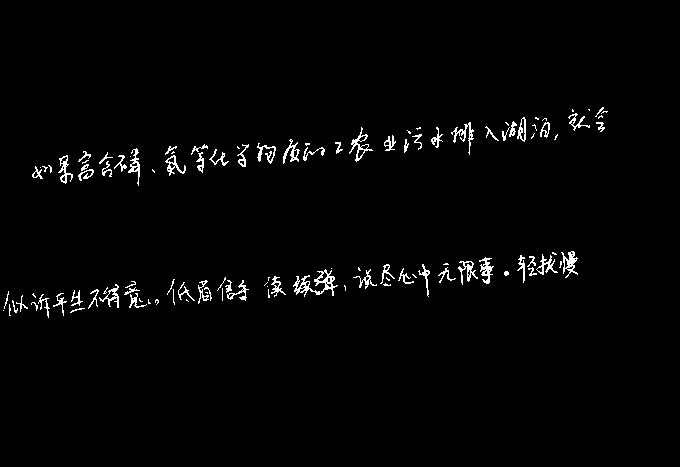 如果富含磷、氮等化学物质的工农业污水排入湖泊,就会
似诉平生不得意。低眉信手续续弹,说尽心中无限事。轻拢慢